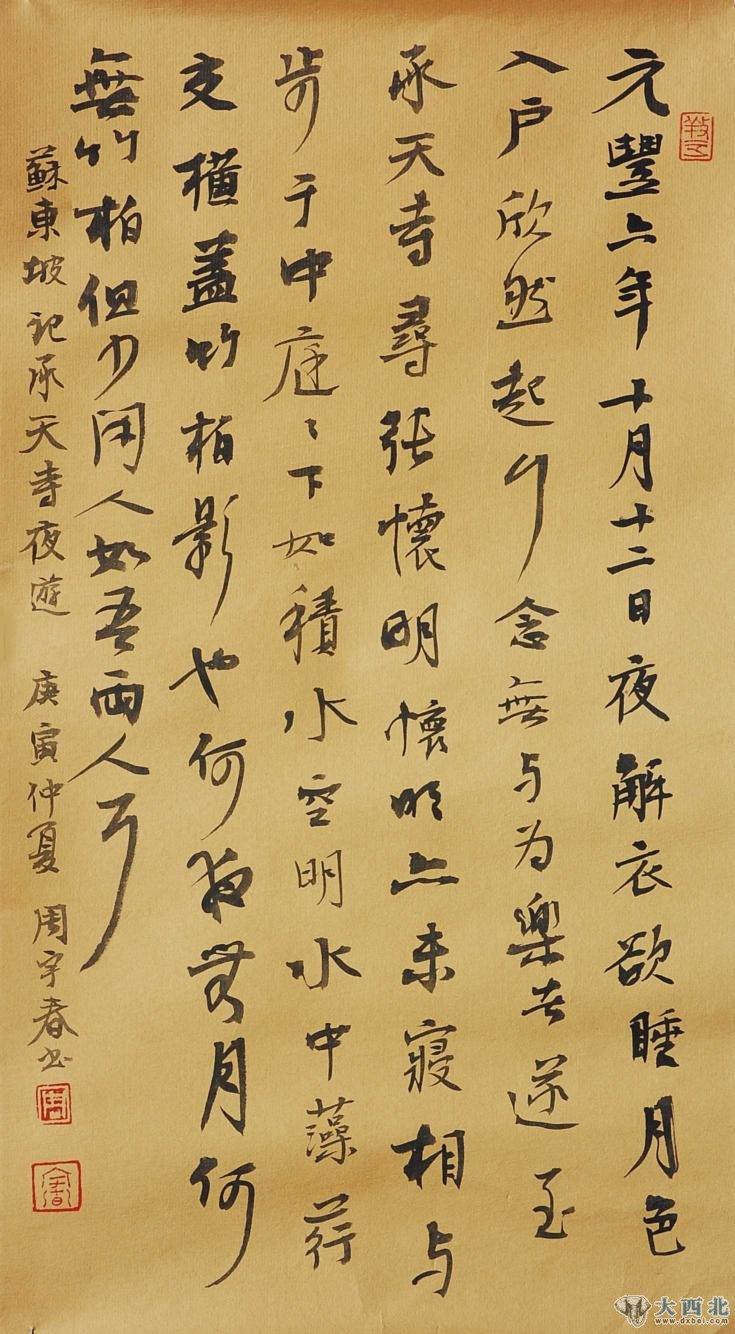 元豐六年十月十二日夜解衣欲睡月色
入户欣然起行念無与为樂者遂至
承天寺尋張懷明懷明亦未寢相与
步于中庭〻下如積水空明水中藻荇
交橫蓋竹柏影也何夜無月何
無竹柏但少闲人如吾兩人耳
蘇東坡記承天寺夜遊 庚寅仲夏 周宇春书
大西北
www.dxbei.com